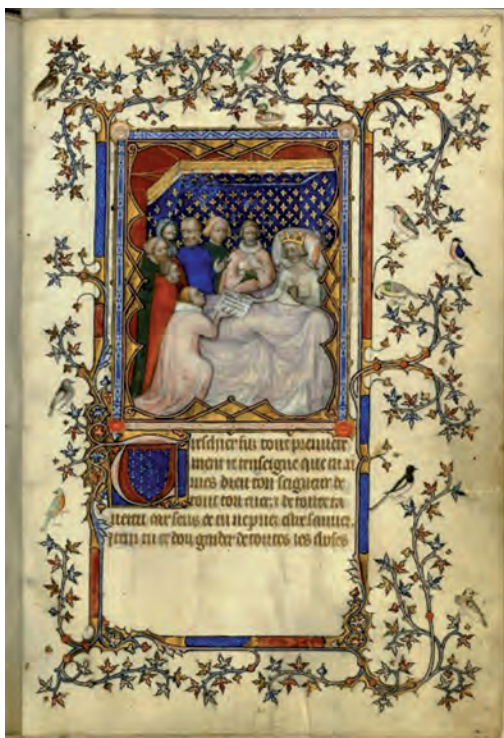 Treschier filz tout premiere
ment je tenseigne que tu ai
mes dieu ton seigneur de
tout ton cuer & de toute ta
car sens ce tu ne puez estre
Item tu te doiz garder de toutes les choses